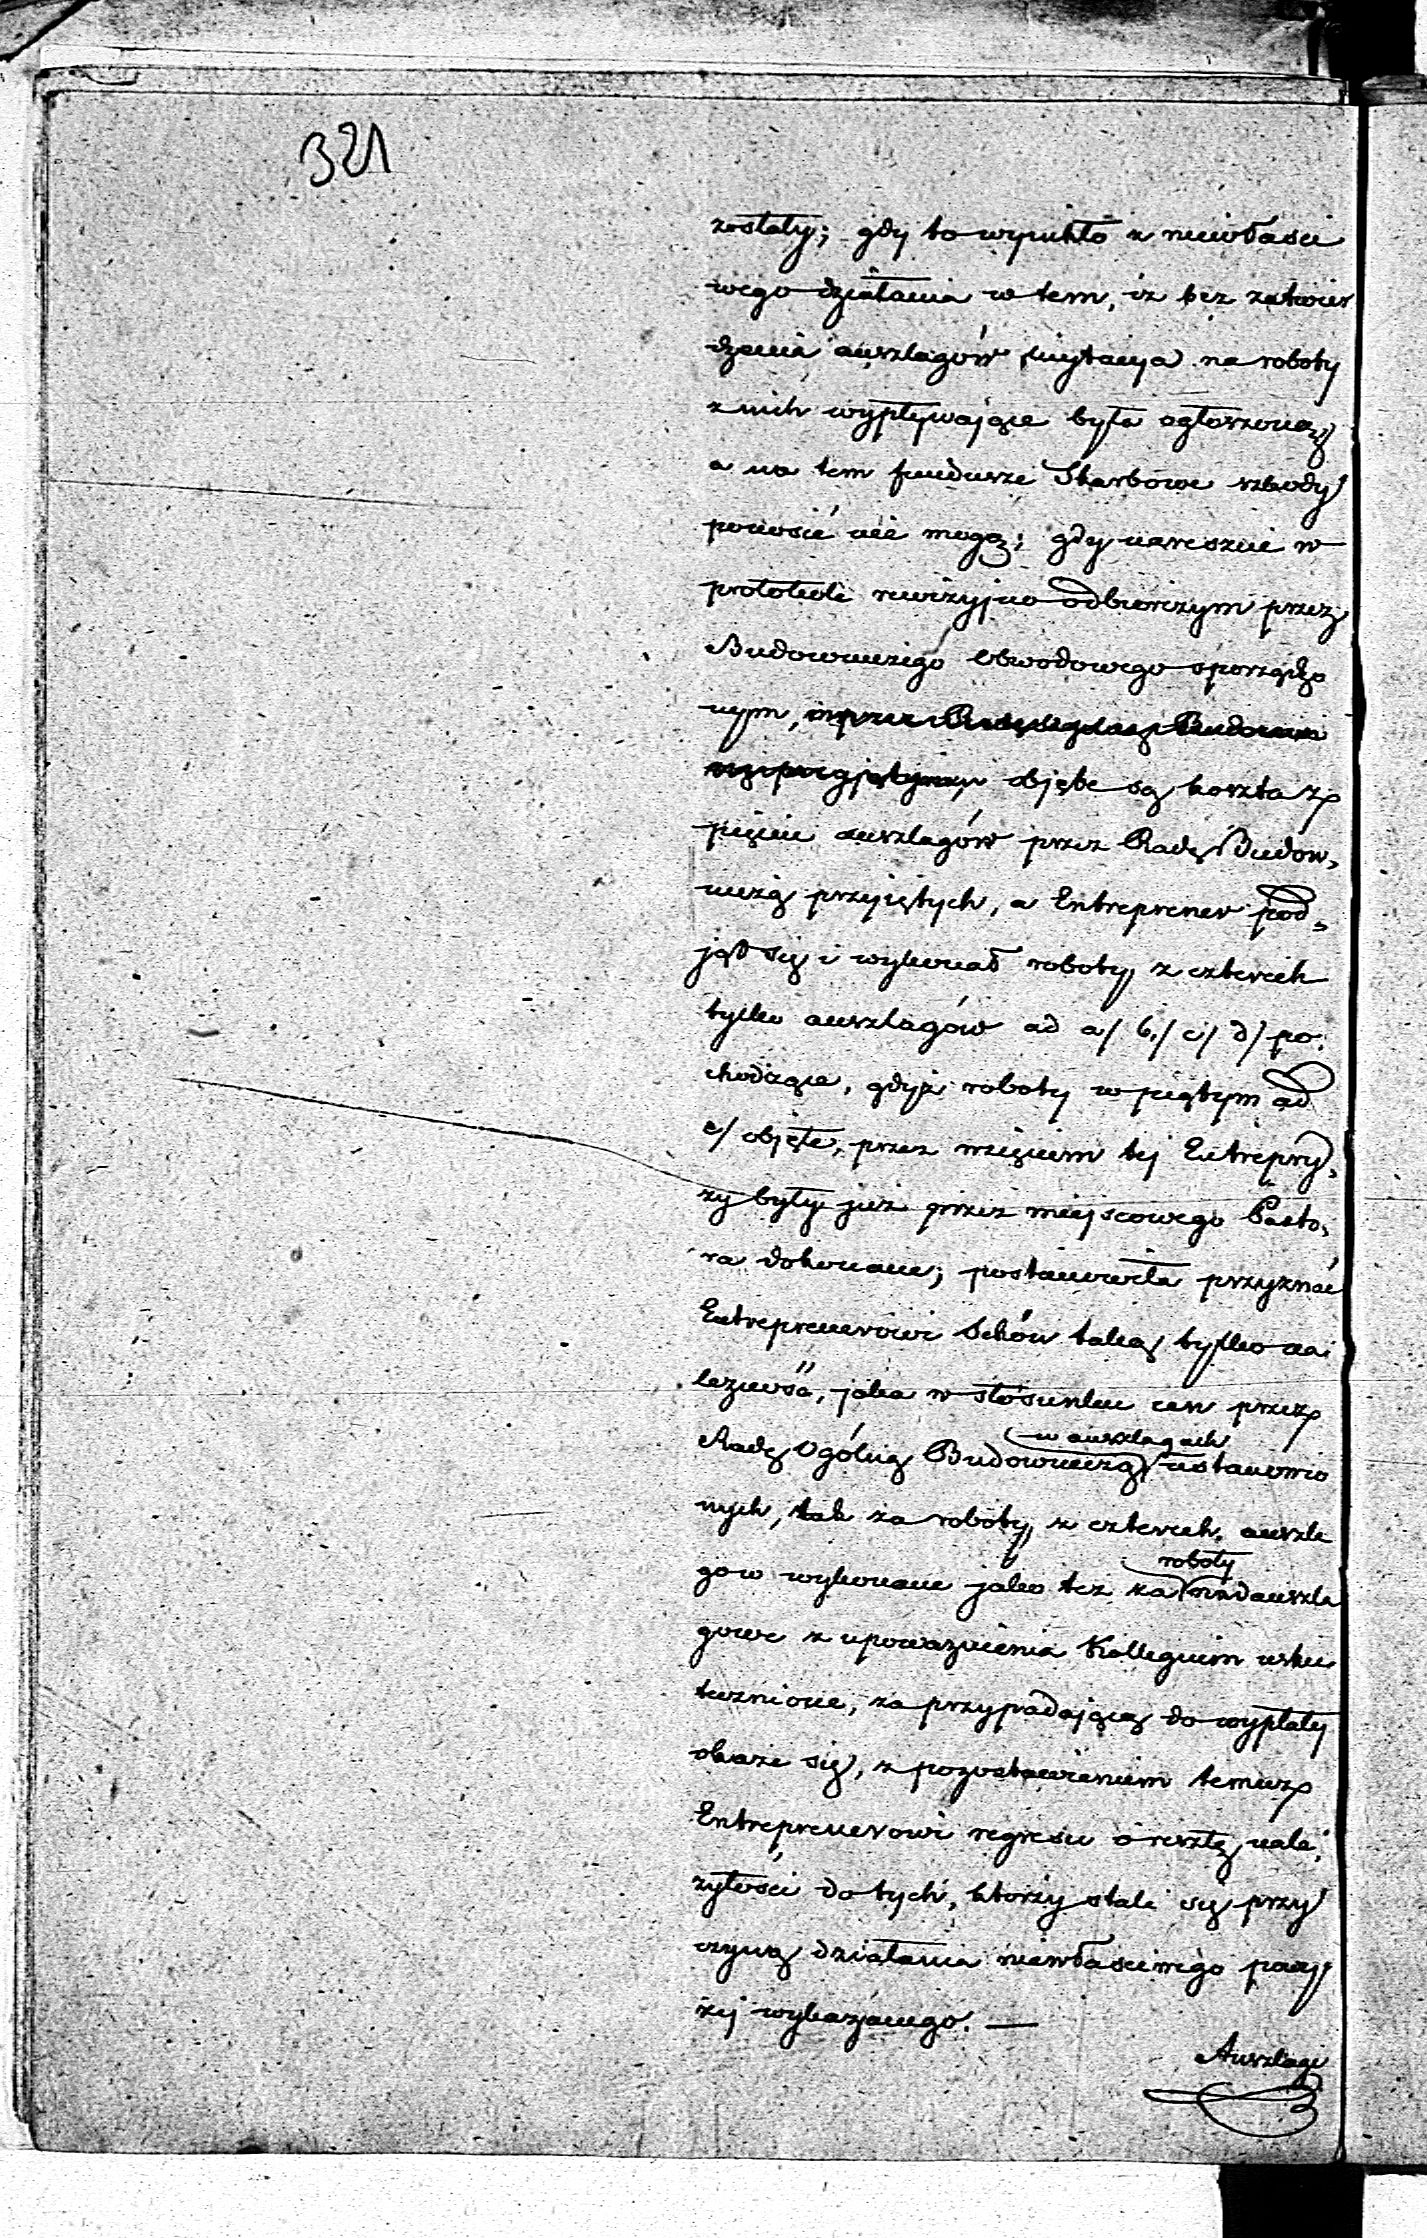 321
zostały; gdy to wynikło z niewłaści
wego działania w tem, iż bez zatwier
dzenia auszlagów licytacya na roboty
z nich wypływające była ogłoszoną,
a na tem fundusze Skarbowe szkody
ponosić nie mogą; gdy nareszcie w
protokole rewizyjno odbiorczym przez
Budowniczego Obwodowego sporządzo
nym, objęte są koszta z
pięciu auszlagów przez Radę Budow„
niczą przyjętych, a Entreprener pod„
jął się i wykonał roboty z czterech
tylko auszlagów ad a/ b./ c/ d/ po„
chodzące, gdyż roboty w piątym ad
e/ objęte, przez wzięciem tej Entrepry„
zy były już przez miejscowego Pasto„
ra dokonane; postanowiła przyznać
Entreprenerowi Schön taką tylko na„
leżność, jaka w stosunku cen przez
w auszlagach
Radę Ogólną Budowniczą ustanowio
nych, tak za roboty z czterech auszla
gow wykonane jako też za nadauszla
roboty
gowe z upoważnienia Kollegium usku
tecznione, za przypadającą do wypłaty
okaże się, z pozostawieniem temuż
Entreprenerowi regresu o resztę nale„
żytości do tych, którzy stali się przy
czyną działania niewłaściwego powy
żej wykazanego. —
Auszlagi